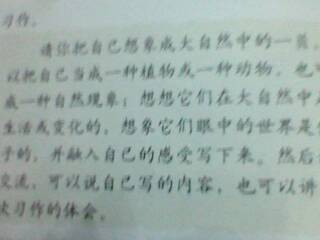 习作。
请你把自己想象成大自然中的一员。
以把自己当成一种植物或一种动物。也可
成一种自然现象；想想它们在大自然中
生活或变化的，想象它们眼中的世界是
子的，并融入自己的感受写下来。然后
交流，可以说自己写的内容，也可以讲
次习作的体会。